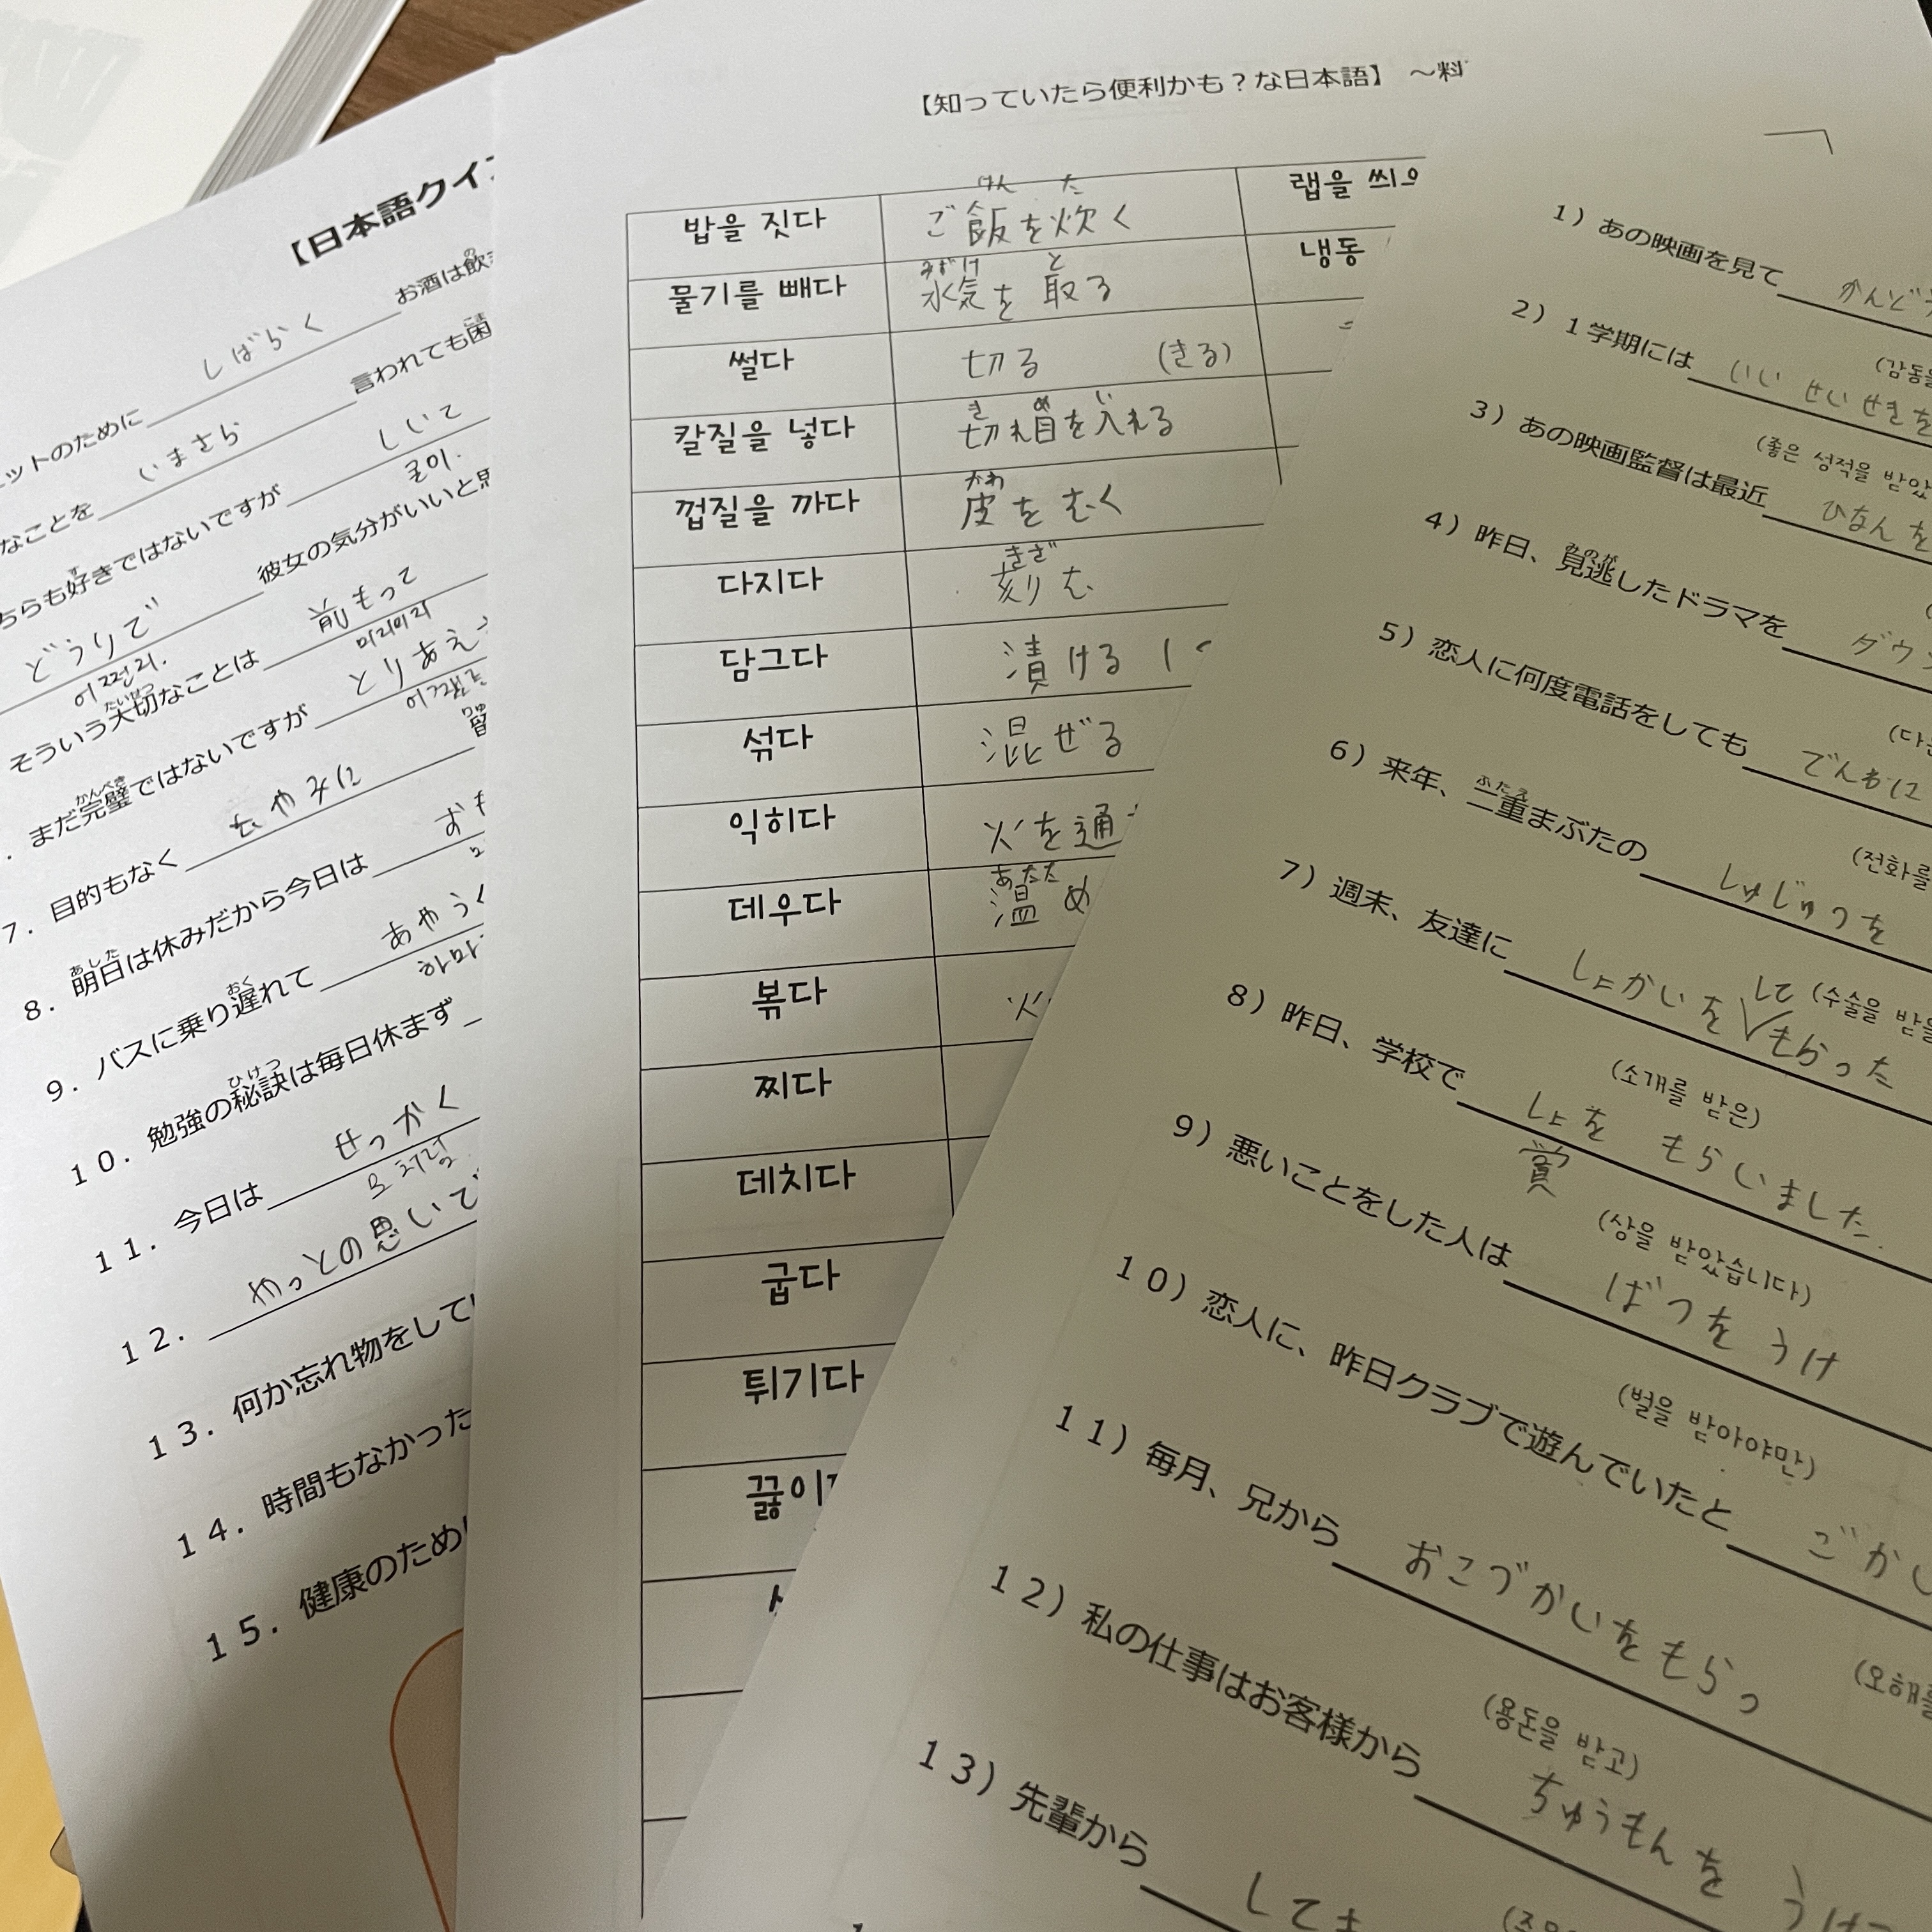 【日本語クイ
しばらく
ットのために お酒は飲
の
いまさら
なことを 言われても困
こま
しいて
ちらも好きではないですが
す
굳이.
どうりで 彼女の気分がいいと思
어쩐지.
前もって
そういう大切なことは
たいせつ
미리미리
とりあえ
まだ完璧ではないですが
かんぺき
りゅ
むやみに
7. 目的もなく
8. 明日は休みだから今日は
あした
あやうく
9. バスに乗り遅れて
おく
하마
10. 勉強の秘訣は毎日休まず
ひけつ
せっかく
11. 今日は
모처럼
やっとの思いで
12.
13. 何か忘れ物をして
14. 時間もなかった
15. 健康のため
【知っていたら便利かも？な日本語】 ～料
밥을 짓다 ご飯を炊く
はん た
랩을 씌우
물기를 빼다 水気を取る
みずけ と
냉동
썰다 切る (きる)
칼질을 넣다 切れ目を入れる
き め い
껍질을 까다 皮をむく
かわ
다지다 刻む
きざ
담그다 漬ける
섞다 混ぜる
익히다 火を通
데우다 温め
あたた
볶다 火
찌다
데치다
굽다
튀기다
끓이
1) あの映画を見て かんどう
(감동을
2) 1学期には いい せいせきを
(좋은 성적을 받았
3) あの映画監督は最近 ひなんを
4) 昨日、見逃したドラマを ダウ
みのが
(다운
5) 恋人に何度電話をしても でんわに
(전화를
6) 来年、二重まぶたの しゅじゅつを
ふたえ
(수술을 받을
7) 週末、友達に しょかいを してもらった
(소개를 받은)
8) 昨日、学校で しょを もらいました.
賞
(상을 받았습니다)
9) 悪いことをした人は ばつを うけ
(벌을 받아야만)
10) 恋人に、昨日クラブで遊んでいたと ごかい
(오해를
11) 毎月、兄から おこづかいをもらっ
(용돈을 받고)
12) 私の仕事はお客様から ちゅうもんを うけ
(주문
13) 先輩から してき